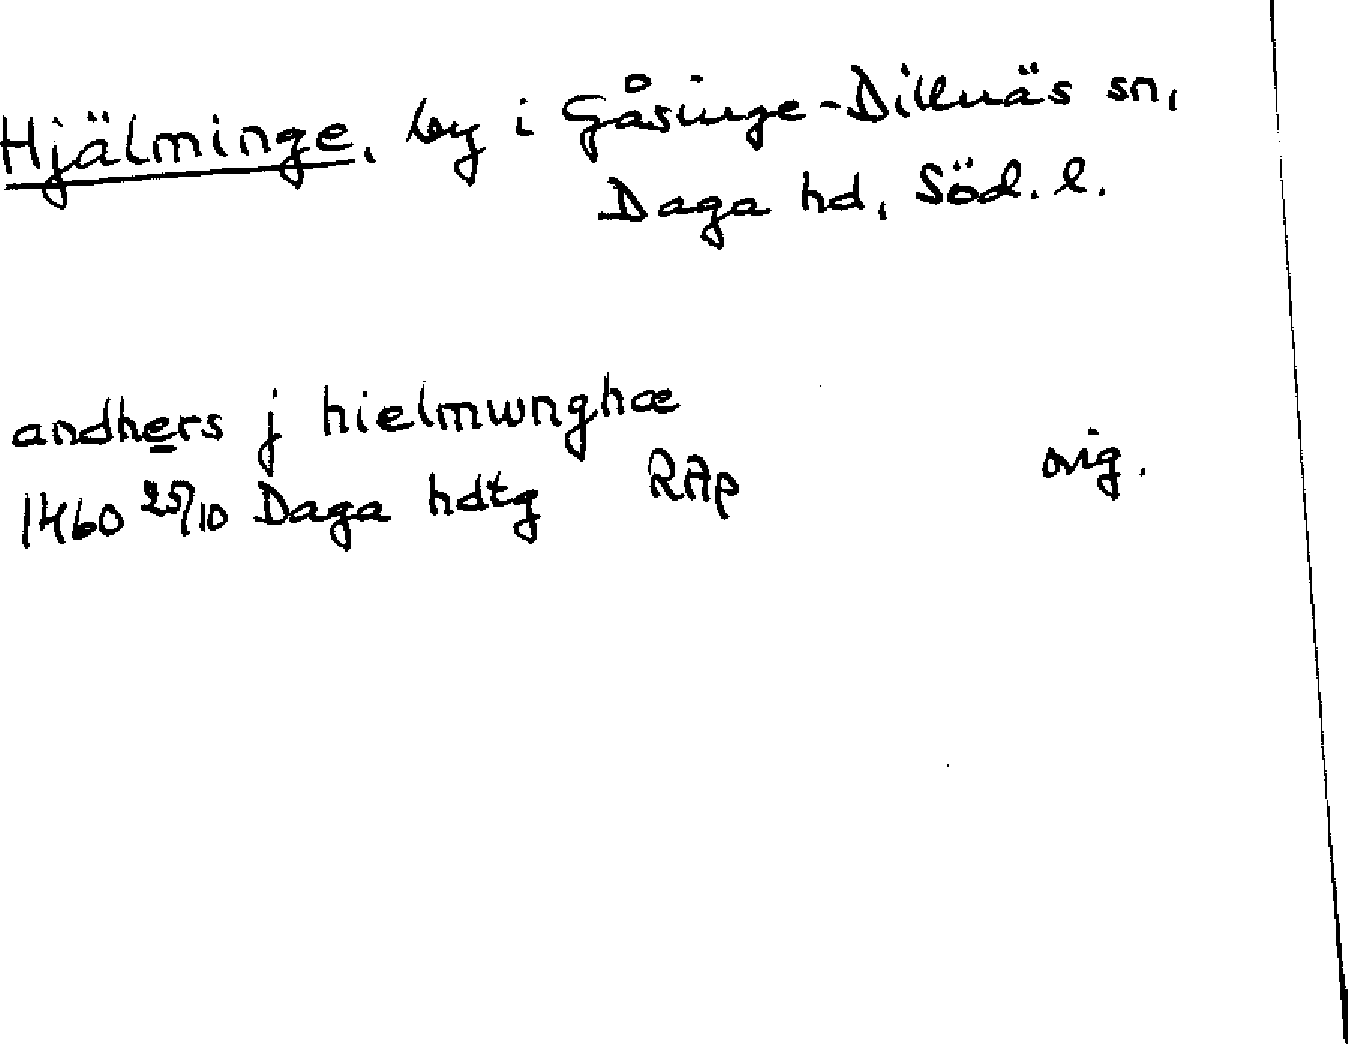 Hjälminge, by i Gåsinge-Dillnäs sn,
Daga hd, Söd. l.
andhers j hielmwnghæ
1460 25/10 Daga hdtg RAp orig.